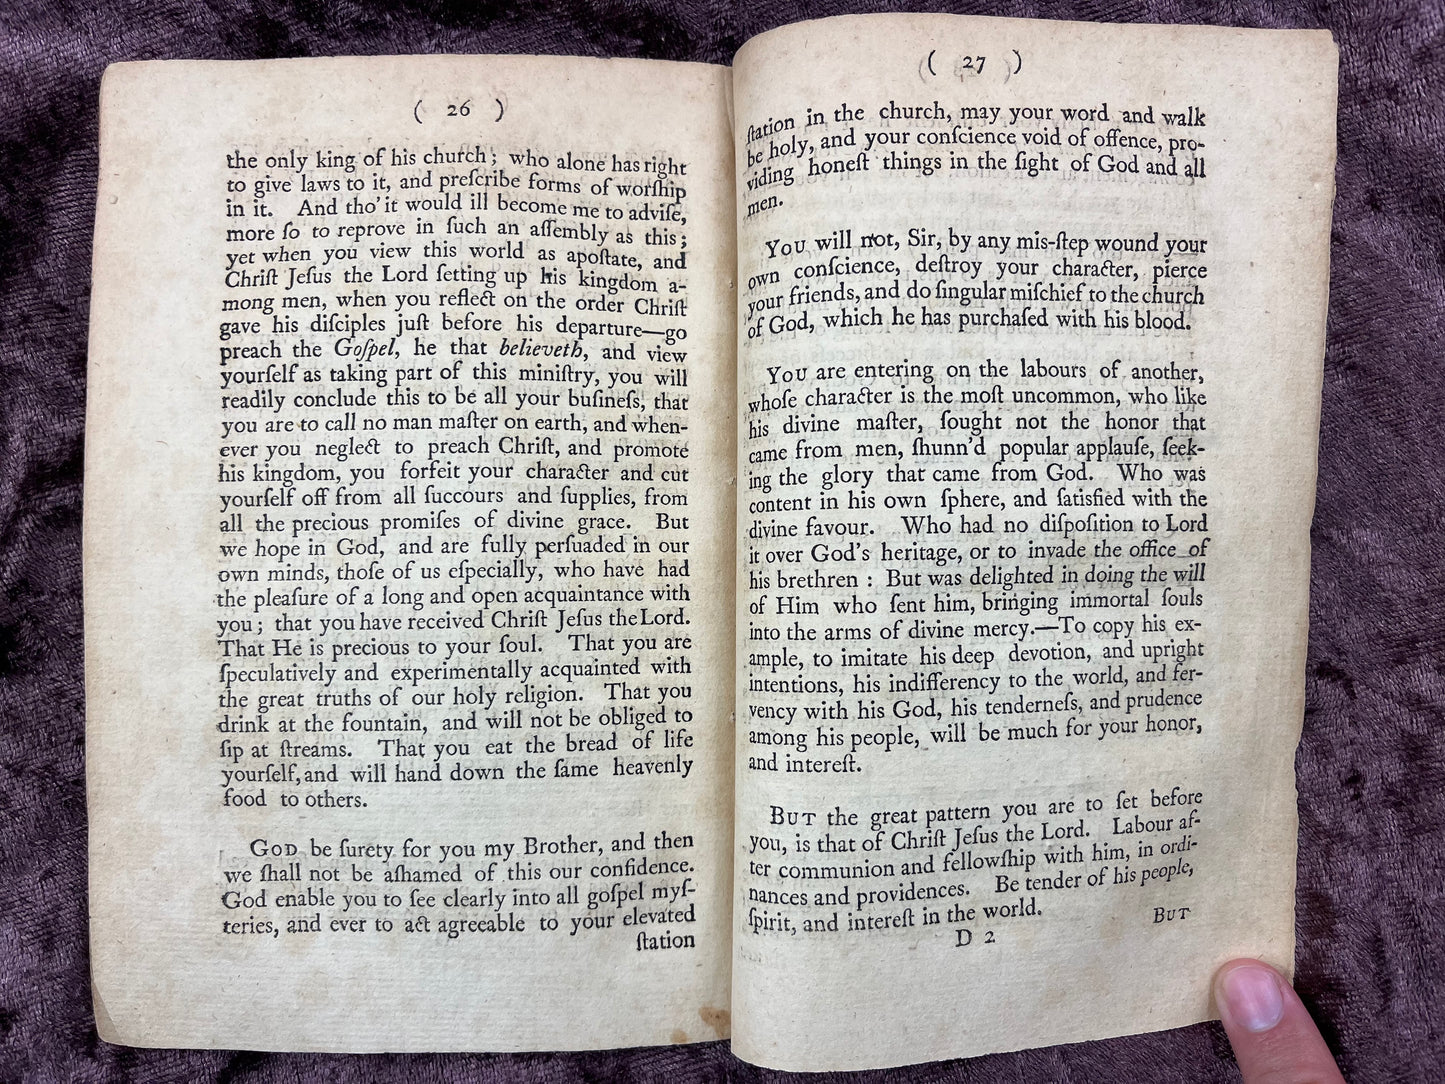 ( 26 )
the only king of his church; who alone has right
to give laws to it, and preſcribe forms of worſhip
in it. And tho' it would ill become me to adviſe,
more ſo to reprove in ſuch an aſſembly as this;
yet when you view this world as apoſtate, and
Chriſt Jeſus the Lord ſetting up his kingdom a-
mong men, when you reflect on the order Chriſt
gave his diſciples juſt before his departure—go
preach the Goſpel, he that believeth, and view
yourſelf as taking part of this miniſtry, you will
readily conclude this to be all your buſineſs, that
you are to call no man maſter on earth, and when-
ever you neglect to preach Chriſt, and promote
his kingdom, you forfeit your character and cut
yourſelf off from all ſuccours and ſupplies, from
all the precious promiſes of divine grace. But
we hope in God, and are fully perſuaded in our
own minds, thoſe of us eſpecially, who have had
the pleaſure of a long and open acquaintance with
you; that you have received Chriſt Jeſus the Lord.
That He is precious to your ſoul. That you are
ſpeculatively and experimentally acquainted with
the great truths of our holy religion. That you
drink at the fountain, and will not be obliged to
ſip at ſtreams. That you eat the bread of life
yourſelf, and will hand down the ſame heavenly
food to others.
GOD be ſurety for you my Brother, and then
we ſhall not be aſhamed of this our confidence.
God enable you to ſee clearly into all goſpel myſ-
teries, and ever to act agreeable to your elevated
ſtation
( 27 )
ſtation in the church, may your word and walk
be holy, and your conſcience void of offence, pro-
viding honeſt things in the ſight of God and all
men.
YOU will not, Sir, by any mis-ſtep wound your
own conſcience, deſtroy your character, pierce
your friends, and do ſingular miſchief to the church
of God, which he has purchaſed with his blood.
YOU are entering on the labours of another,
whoſe character is the moſt uncommon, who like
his divine maſter, ſought not the honor that
came from men, ſhunn'd popular applauſe, ſeek-
ing the glory that came from God. Who was
content in his own ſphere, and ſatisfied with the
divine favour. Who had no diſpoſition to Lord
it over God's heritage, or to invade the office of
his brethren : But was delighted in doing the will
of Him who ſent him, bringing immortal ſouls
into the arms of divine mercy.—To copy his ex-
ample, to imitate his deep devotion, and upright
intentions, his indifferency to the world, and fer-
vency with his God, his tenderneſs, and prudence
among his people, will be much for your honor,
and intereſt.
BUT the great pattern you are to ſet before
you, is that of Chriſt Jeſus the Lord. Labour af-
ter communion and fellowſhip with him, in ordi-
nances and providences. Be tender of his people,
ſpirit, and intereſt in the world.
BUT
D 2